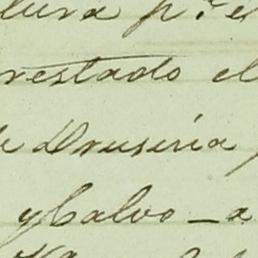 lura p.r el
restado el
de Drusiria
y Calvo - a